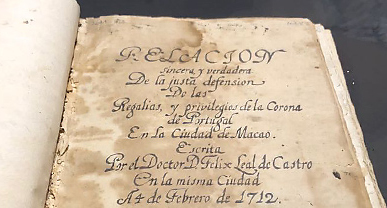 RELACION
sincera y verdadera
De la justa defension
De las
Regalias, y privilegios de la Corona
de Portugal
En la Ciudad de Macao.
Escrita
Por el Doctor D. Felix Leal de Castro
En la misma Ciudad
A 4 de Febrero de 1712.